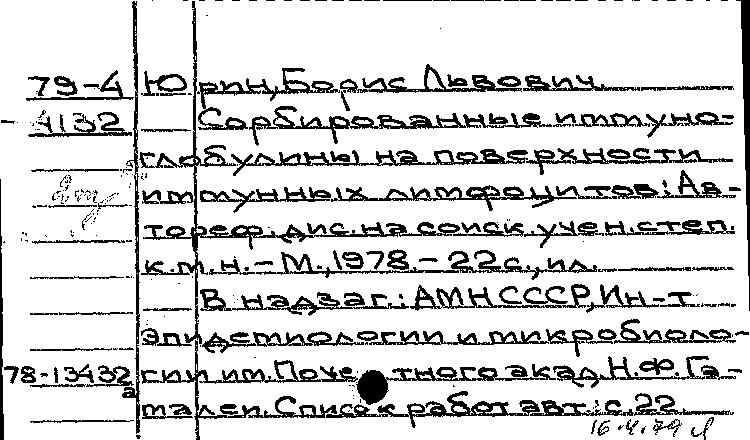 79-4 Юрин, Борис Львович.
4132 Сорбированные иммуно-
глобулины на поверхности
иммунных лимфоцитов: Ав-
тореф. дис. на соиск. учен. степ.
к.м.н. - М., 1978. - 22 с., ил.
В надзаг.: АМН СССР, Ин-т
эпидемиологии и микробиоло-
78-13432а гии им. Поче тного акад. Н.Ф. Га-
малеи. Список работ авт.: с. 22
16.4.79